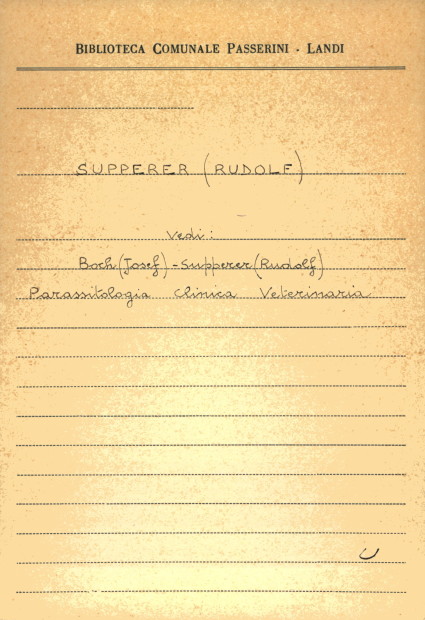 BIBLIOTECA COMUNALE PASSERINI - LANDI
SUPPERER (RUDOLF)
Vedi:
Boch (Josef) - Supperer (Rudolf)
Parassitologia Clinica Veterinaria